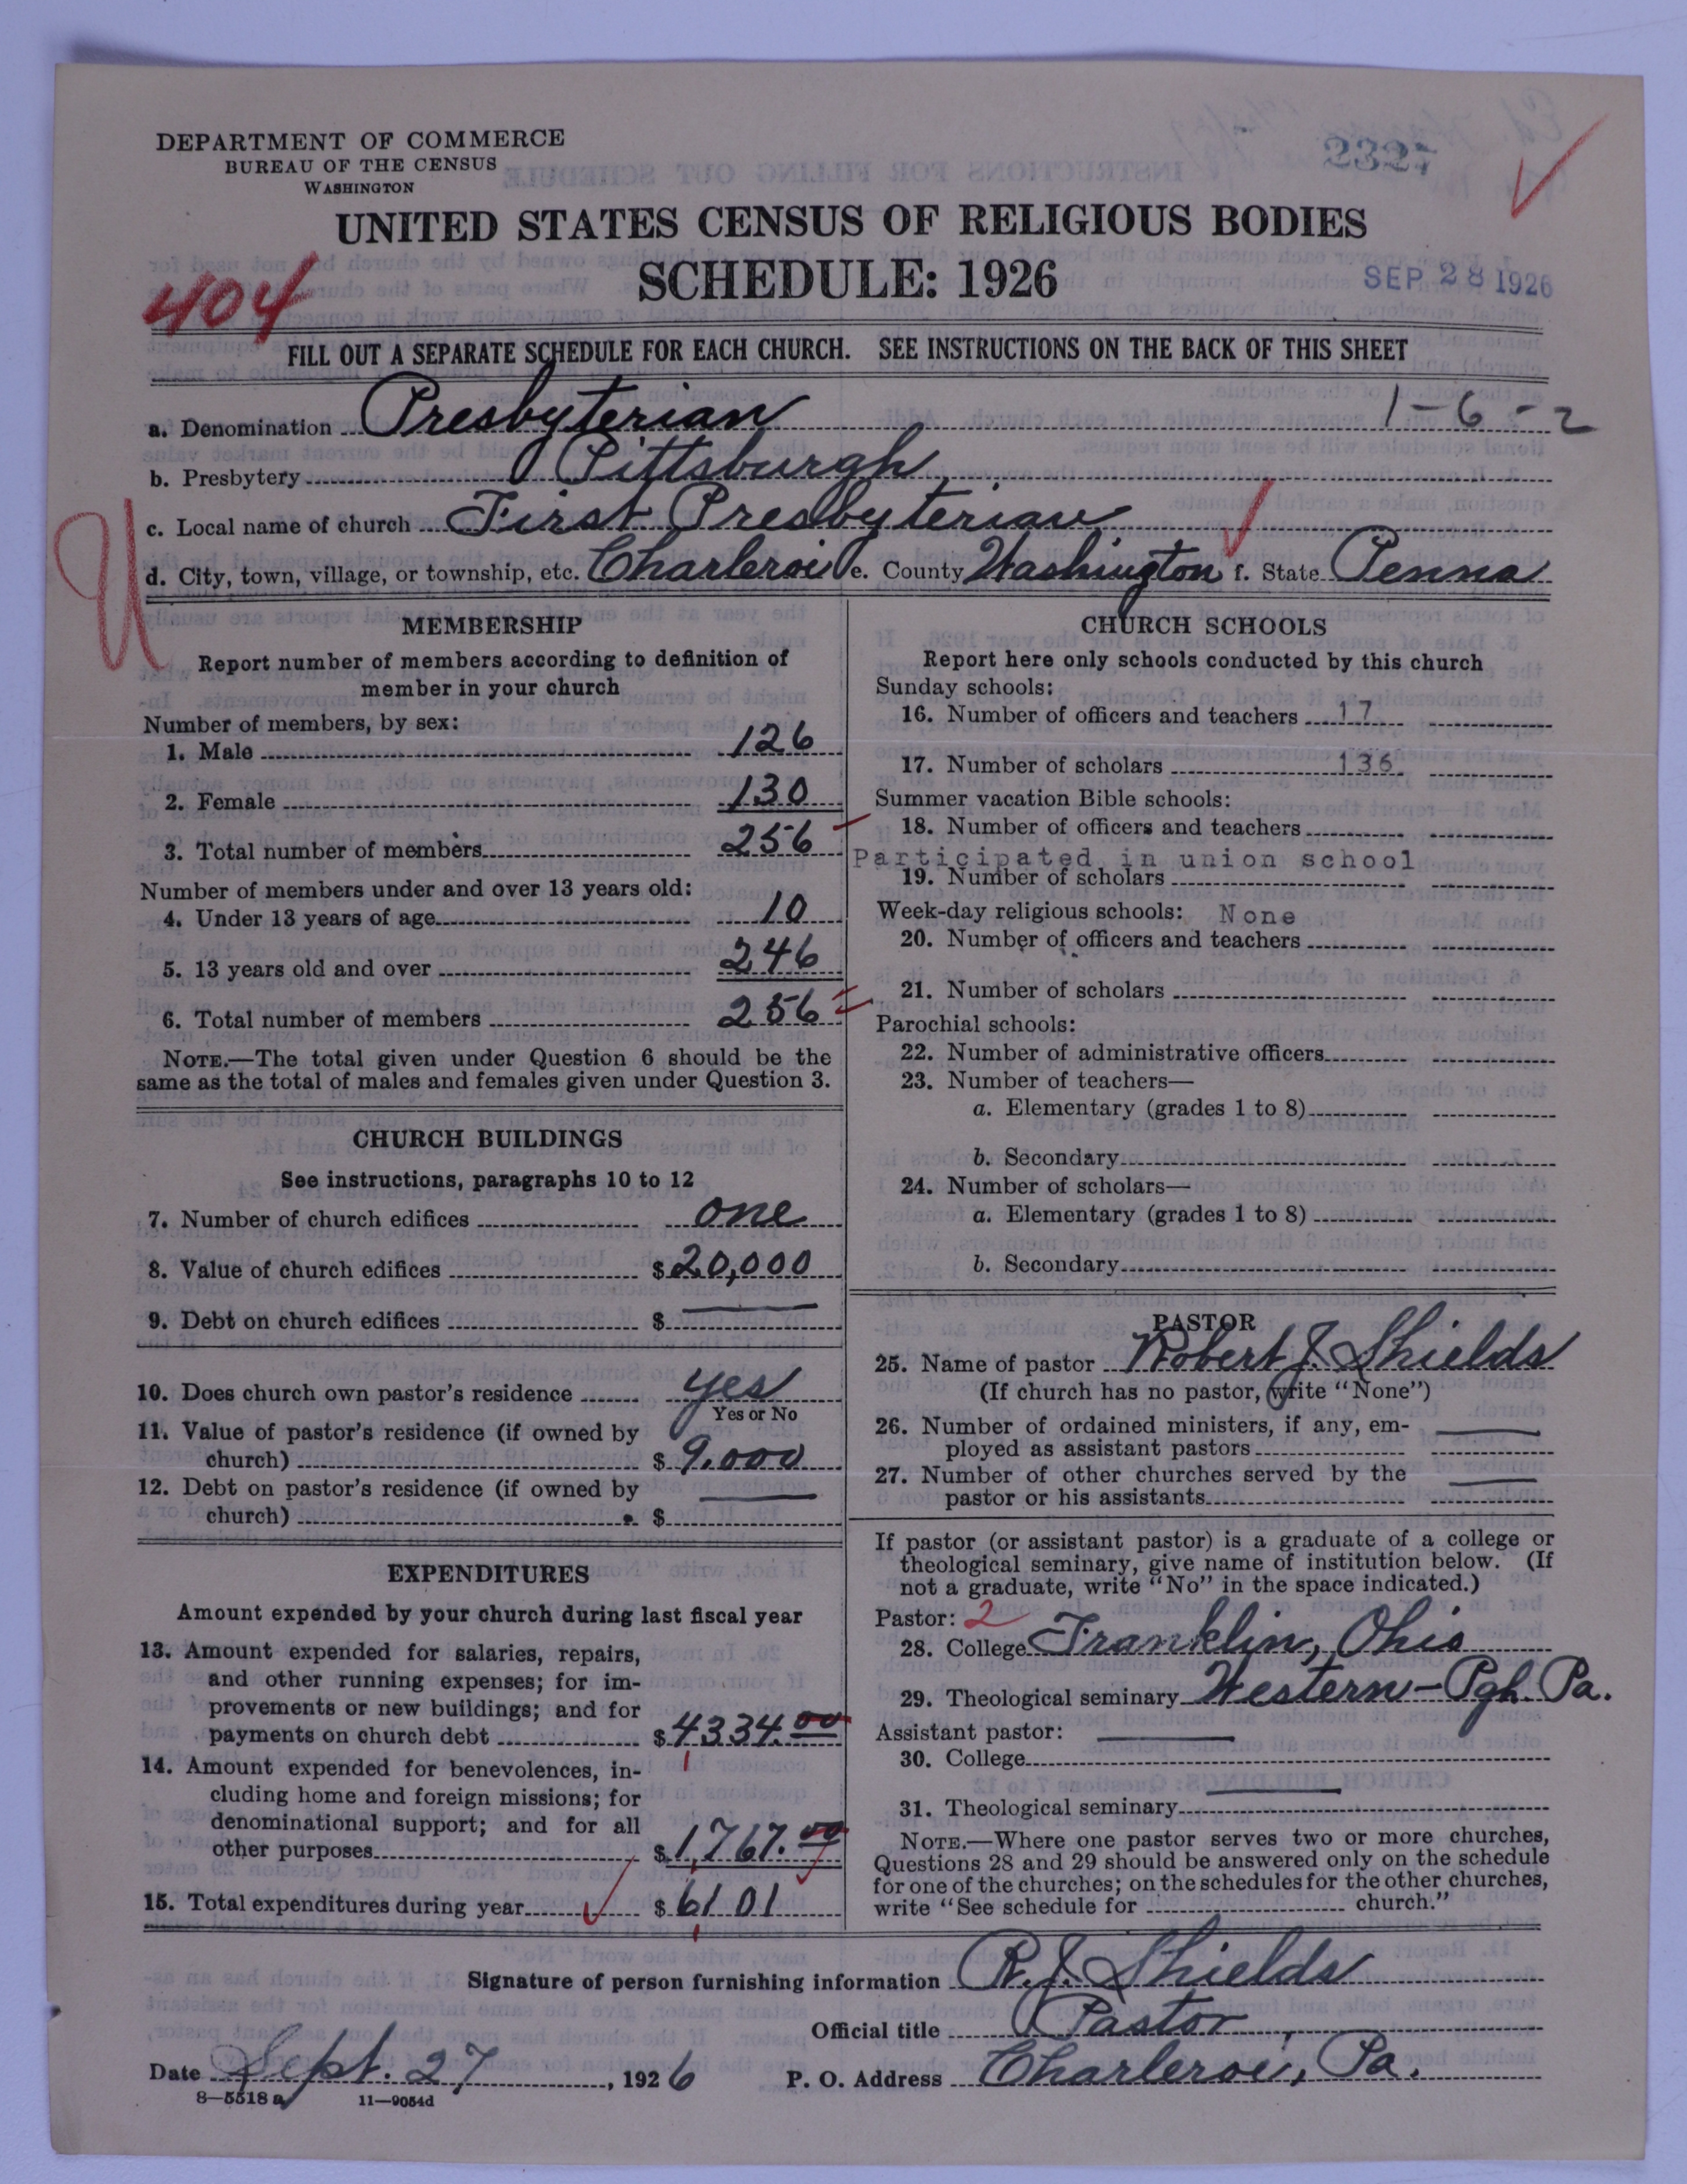 DEPARTMENT OF COMMERCE
BUREAU OF THE CENSUS
WASHINGTON
2327
UNITED STATES CENSUS OF RELIGIOUS BODIES
SCHEDULE: 1926
SEP 28 1926
404
FILL OUT A SEPARATE SCHEDULE FOR EACH CHURCH. SEE INSTRUCTIONS ON THE BACK OF THIS SHEET
a. Denomination Presbyterian 1-6-2
b. Presbytery Pittsburgh
c. Local name of church First Presbyterian
d. City, town, village, or township, etc. Charleroi e. County Washington f. State Penna
U
MEMBERSHIP
Report number of members according to definition of
member in your church
Number of members, by sex:
1. Male 126
2. Female 130
3. Total number of members 256
Number of members under and over 13 years old:
4. Under 13 years of age 10
5. 13 years old and over 246
6. Total number of members 256
NOTE.—The total given under Question 6 should be the
same as the total of males and females given under Question 3.
CHURCH BUILDINGS
See instructions, paragraphs 10 to 12
7. Number of church edifices one
8. Value of church edifices $20,000
9. Debt on church edifices $ —
10. Does church own pastor's residence yes
Yes or No
11. Value of pastor's residence (if owned by
church) $ 9,000
12. Debt on pastor's residence (if owned by
church) $ —
EXPENDITURES
Amount expended by your church during last fiscal year
13. Amount expended for salaries, repairs,
and other running expenses; for im-
provements or new buildings; and for
payments on church debt $4334.00
14. Amount expended for benevolences, in-
cluding home and foreign missions; for
denominational support; and for all
other purposes $1,767.00
15. Total expenditures during year $6101
CHURCH SCHOOLS
Report here only schools conducted by this church
Sunday schools:
16. Number of officers and teachers 17
17. Number of scholars 136
Summer vacation Bible schools:
18. Number of officers and teachers
Participated in union school
19. Number of scholars
Week-day religious schools: None
20. Number of officers and teachers
21. Number of scholars
Parochial schools:
22. Number of administrative officers
23. Number of teachers—
a. Elementary (grades 1 to 8)
b. Secondary
24. Number of scholars—
a. Elementary (grades 1 to 8)
b. Secondary
PASTOR
25. Name of pastor Robert J. Shields
(If church has no pastor, write "None")
26. Number of ordained ministers, if any, em-
ployed as assistant pastors —
27. Number of other churches served by the
pastor or his assistants —
If pastor (or assistant pastor) is a graduate of a college or
theological seminary, give name of institution below. (If
not a graduate, write "No" in the space indicated.)
Pastor: 2
28. College Franklin, Ohio
29. Theological seminary Western - Pgh. Pa.
Assistant pastor: —
30. College
31. Theological seminary —
NOTE.—Where one pastor serves two or more churches,
Questions 28 and 29 should be answered only on the schedule
for one of the churches; on the schedules for the other churches,
write "See schedule for church."
Signature of person furnishing information R. J. Shields
Official title Pastor
Date Sept. 27, 1926 P. O. Address Charleroi, Pa.
8—5518 a 11—9054d